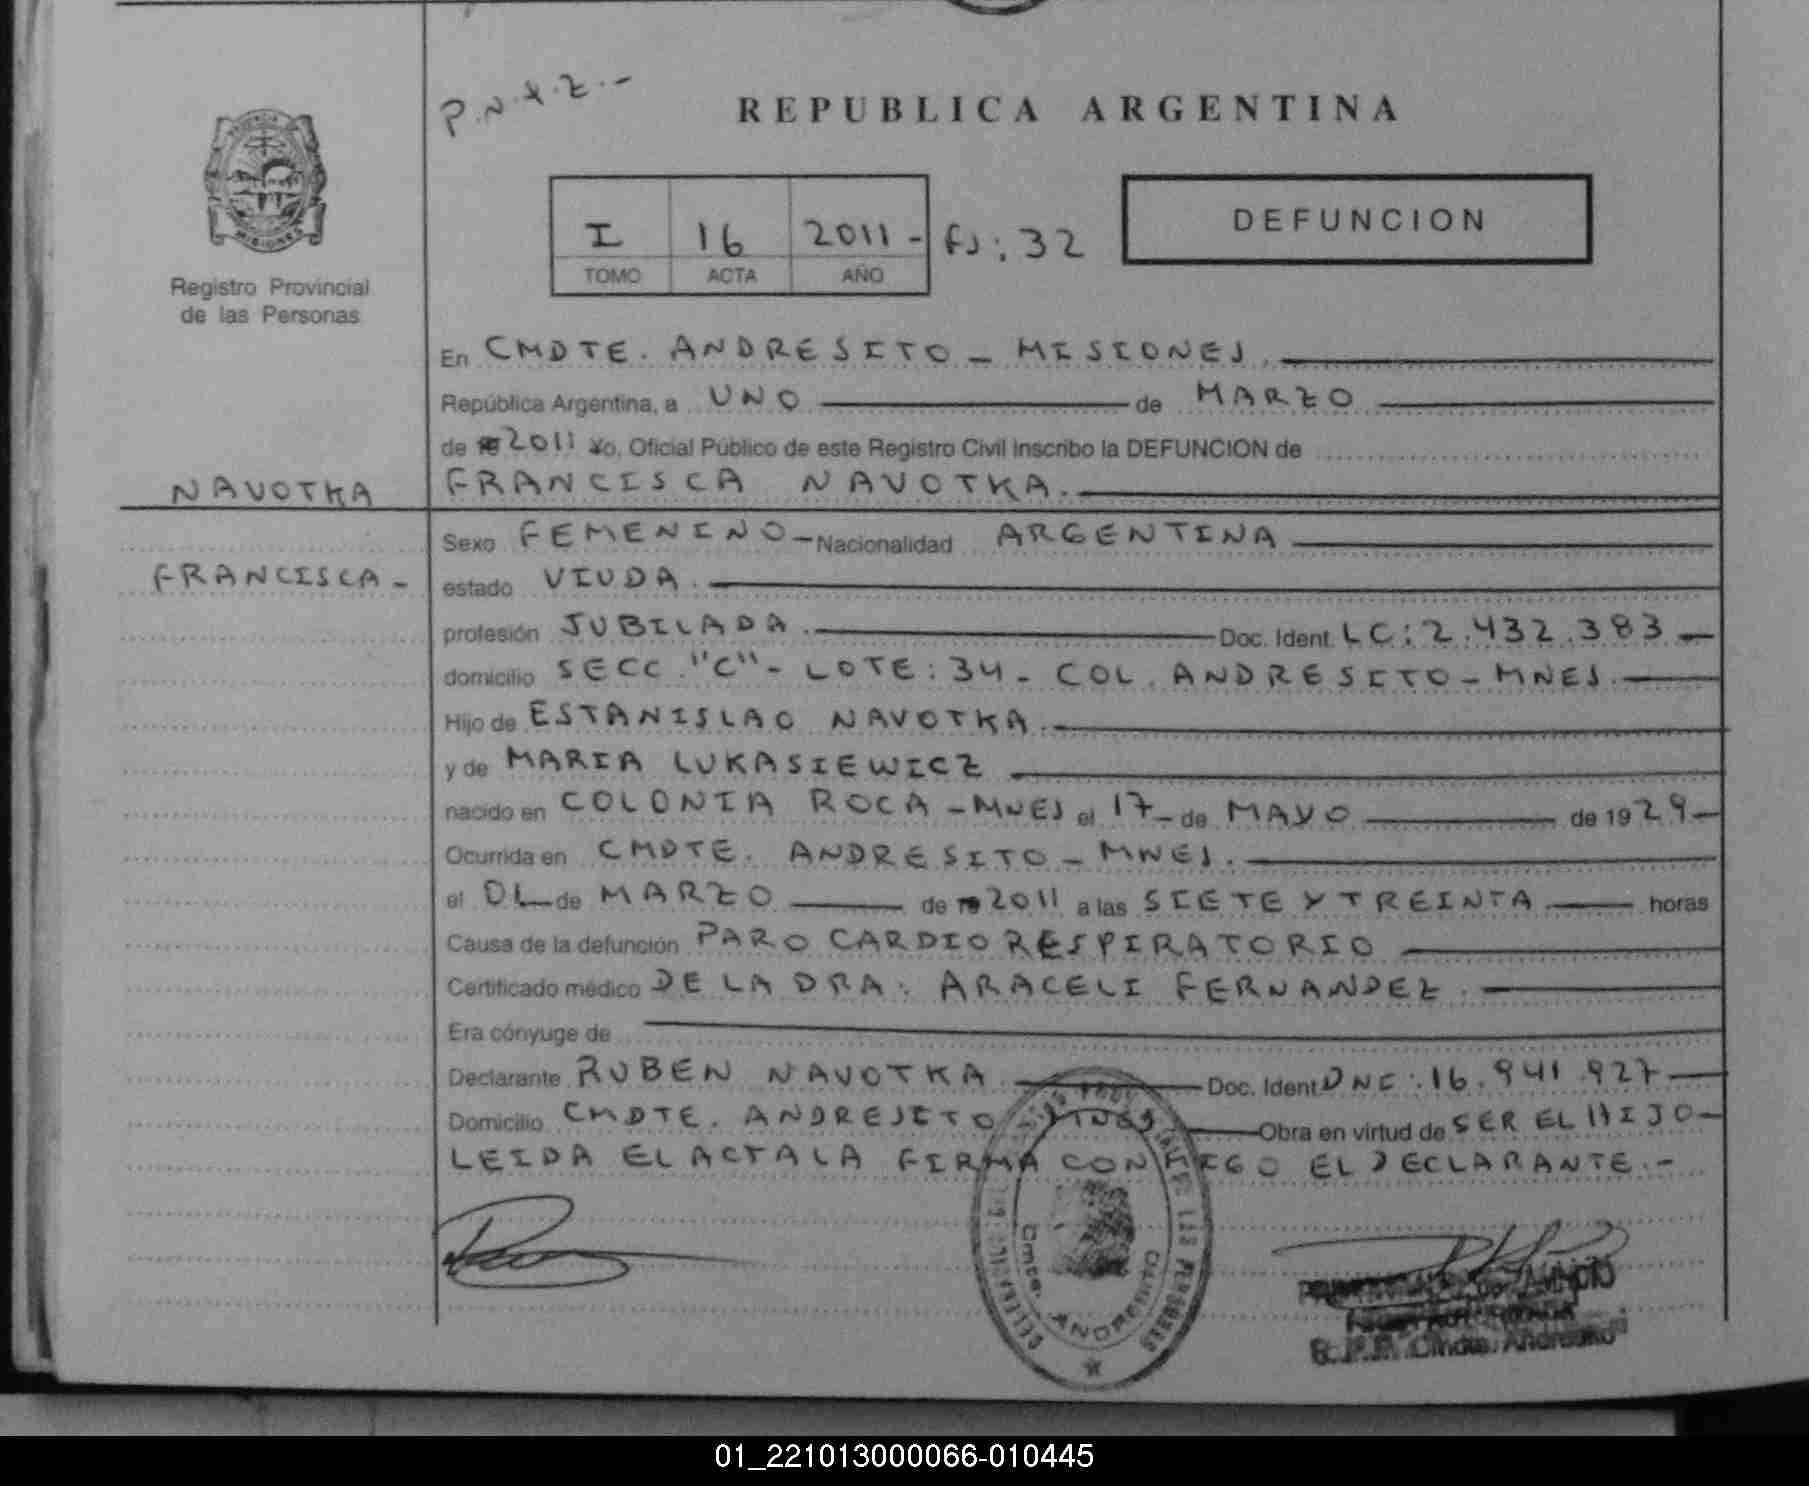 P.N.Y.Z.-
REPUBLICA ARGENTINA
PROVINCIA
MISIONES
Registro Provincial
de las Personas
I 16 2011- FJ: 32
TOMO ACTA AÑO
DEFUNCION
En CMDTE. ANDRESITO - MISIONES.
República Argentina, a UNO de MARZO
de 2011 Yo, Oficial Público de este Registro Civil inscribo la DEFUNCION de
NAVOTKA
FRANCISCA NAVOTKA.
Sexo FEMENINO - Nacionalidad ARGENTINA
FRANCISCA -
estado VIUDA.
profesión JUBILADA. Doc. Ident. LC: 2.432.383
domicilio SECC. "C" - LOTE: 34 - COL. ANDRESITO - MNES.
Hijo de ESTANISLAO NAVOTKA.
y de MARIA LUKASIEWICZ
nacido en COLONIA ROCA - MNES el 17 - de MAYO de 1929
Ocurrida en CMDTE. ANDRESITO - MNES.
el 01 de MARZO de 2011 a las SIETE Y TREINTA horas
Causa de la defunción PARO CARDIO RESPIRATORIO
Certificado médico DE LA DRA: ARACELI FERNANDEZ.
Era cónyuge de
Declarante RUBEN NAVOTKA Doc. Ident DNI: 16.941.927
Domicilio CMDTE. ANDRESITO - MNES Obra en virtud de SER EL HIJO -
LEIDA EL ACTA LA FIRMA CONMIGO EL DECLARANTE.-
LAS PERSONAS
Cmte. ANDRESITO
R.P.P. Cmdte. Andresito
01_221013000066-010445